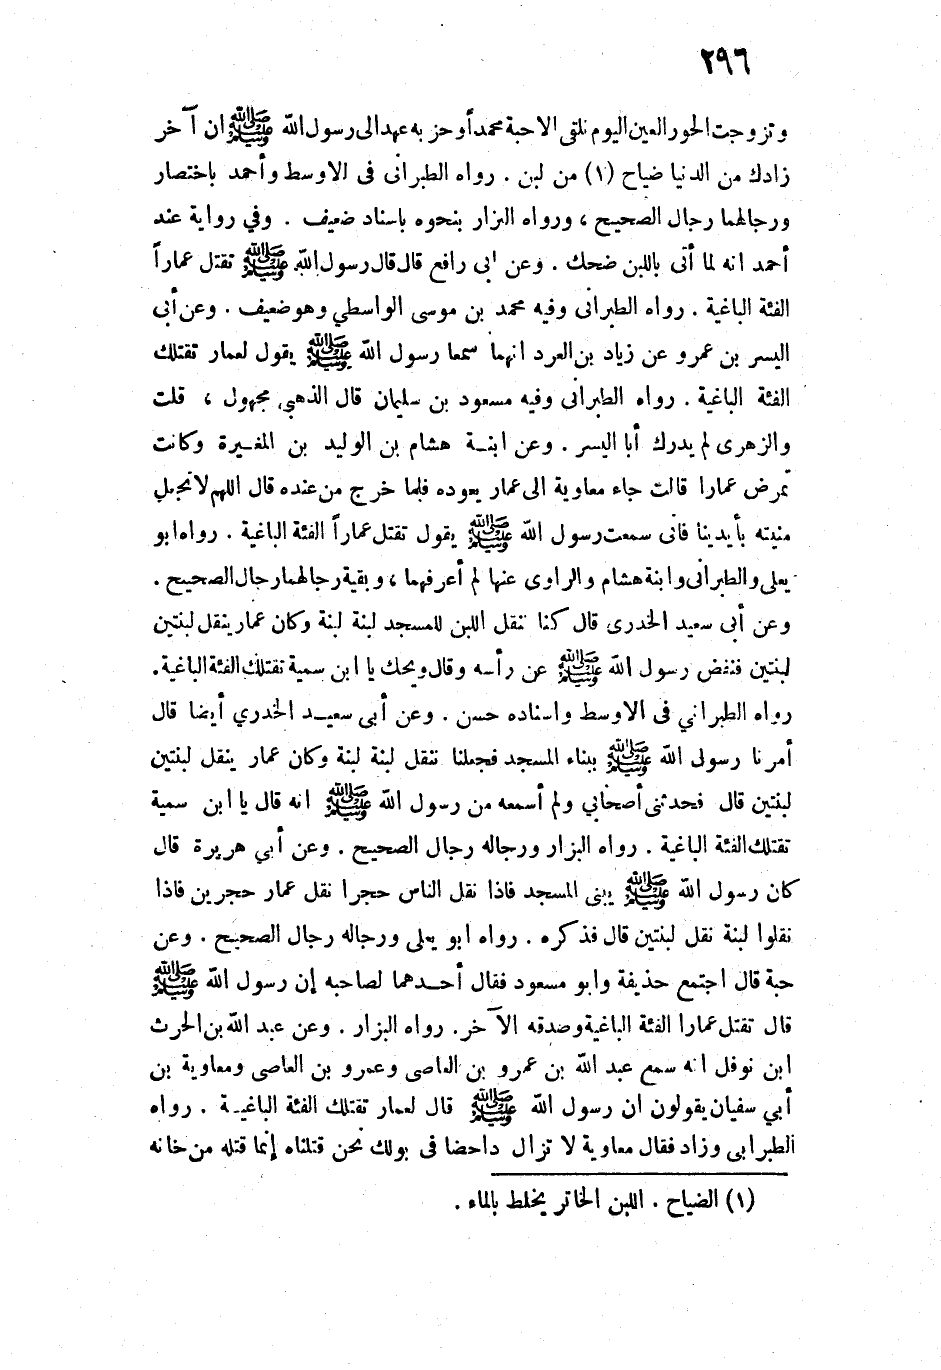 ٢٩٦
وتزوجت الحور العين اليوم نلقى الاحبة محمد أو حزبه عهد الى رسول الله ﷺ ان آخر
زادك من الدنيا ضياح (١) من لبن . رواه الطبرانى فى الاوسط وأحمد باختصار
ورجالهما رجال الصحيح ، ورواه البزار بنحوه باسناد ضعيف . وفي رواية عند
أحمد انه لما أتى باللبن ضحك . وعن ابى رافع قال قال رسول الله ﷺ تقتل عماراً
الفئة الباغية . رواه الطبرانى وفيه محمد بن موسى الواسطي وهو ضعيف . وعن أبى
اليسر بن عمرو عن زياد بن العرد انهما سمعا رسول الله ﷺ يقول لعمار تقتلك
الفئة الباغية . رواه الطبرانى وفيه مسعود بن سليمان قال الذهبي مجهول ، قلت
والزهرى لم يدرك أبا اليسر . وعن ابنة هشام بن الوليد بن المغيرة وكانت
تمرض عمارا قالت جاء معاوية الى عمار يعوده فلما خرج من عنده قال اللهم لا تجعل
منيته بأيدينا فانى سمعت رسول الله ﷺ يقول تقتل عماراً الفئة الباغية . رواه ابو
يعلى والطبرانى وابنة هشام والراوى عنها لم أعرفهما ، وبقية رجالهما رجال الصحيح .
وعن أبى سعيد الخدرى قال كنا ننقل اللبن للمسجد لبنة لبنة وكان عمار ينقل لبنتين
لبنتين فنفض رسول الله ﷺ عن رأسه وقال ويحك يا ابن سمية تقتلك الفئة الباغية .
رواه الطبراني فى الاوسط واسناده حسن . وعن أبى سعيد الخدري أيضا قال
أمرنا رسول الله ﷺ ببناء المسجد فجعلنا ننقل لبنة لبنة وكان عمار ينقل لبنتين
لبنتين قال فحدثنى أصحابي ولم أسمعه من رسول الله ﷺ انه قال يا ابن سمية
تقتلك الفئة الباغية . رواه البزار ورجاله رجال الصحيح . وعن أبي هريرة قال
كان رسول الله ﷺ يبنى المسجد فاذا نقل الناس حجرا نقل عمار حجرين فاذا
نقلوا لبنة نقل لبنتين قال فذكره . رواه ابو يعلى ورجاله رجال الصحيح . وعن
حبة قال اجتمع حذيفة وابو مسعود فقال أحدهما لصاحبه إن رسول الله ﷺ
قال تقتل عمارا الفئة الباغية وصدقه الآخر . رواه البزار . وعن عبد الله بن الحرث
ابن نوفل انه سمع عبد الله بن عمرو بن العاصى وعمرو بن العاصى ومعاوية بن
أبي سفيان يقولون ان رسول الله ﷺ قال لعمار تقتلك الفئة الباغية . رواه
الطبرابى وزاد فقال معاوية لا تزال داحضا فى بولك نحن قتلناه إنما قتله من خانه
(١) الضياح . اللبن الخاثر يخلط بالماء .